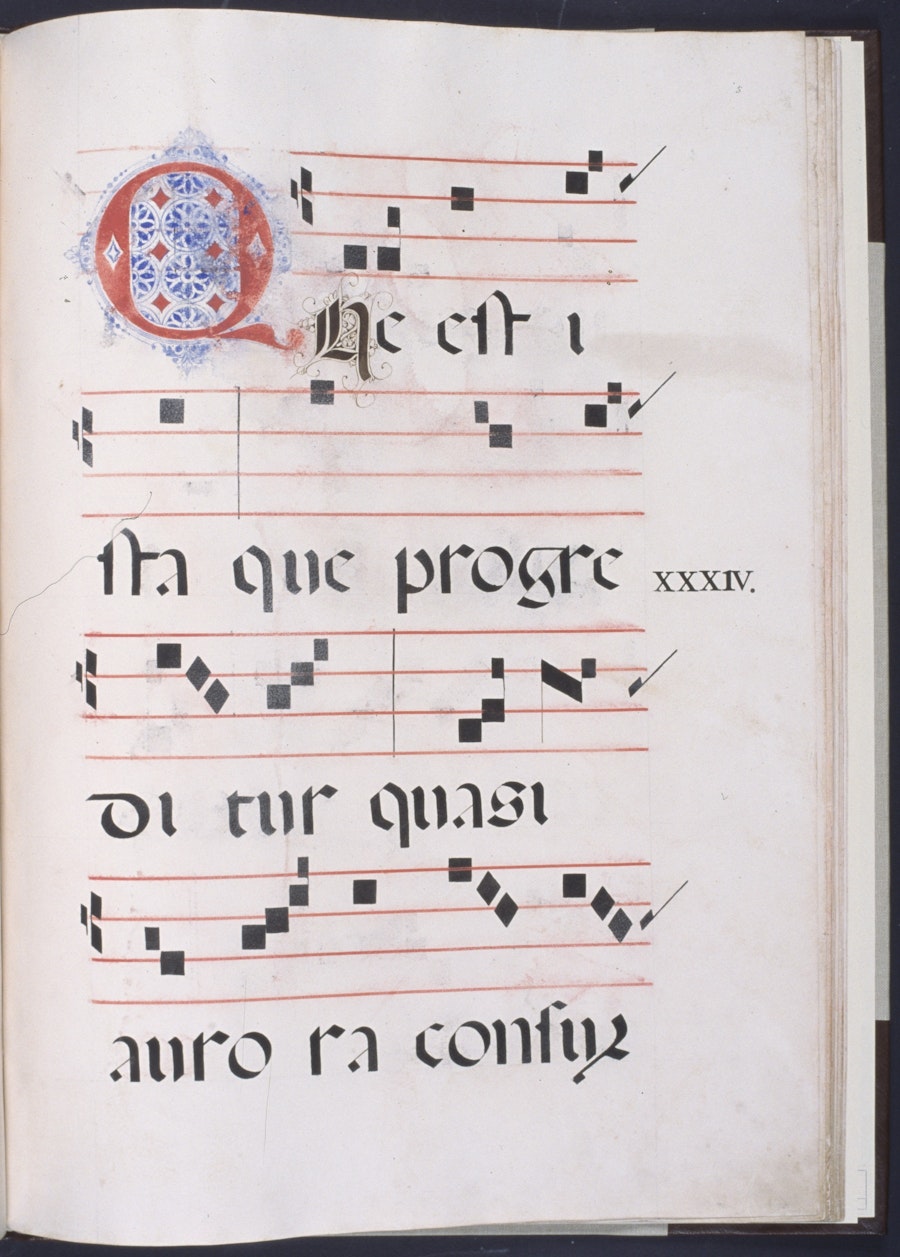 Que est i
sta que progre
XXXIV.
di tur quasi
auro ra consur